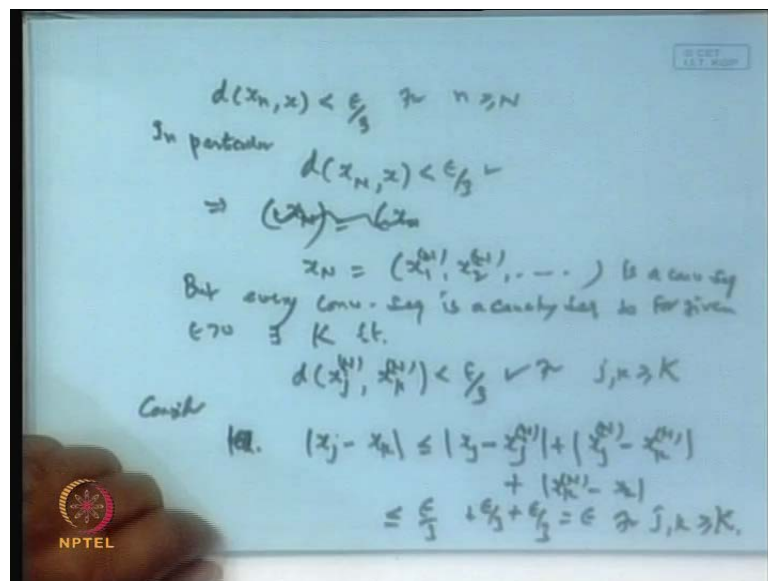 © CET
I.I.T. KGP
d(xₙ, x) < ε/3 for n ≥ N
In particular
d(x_N, x) < ε/3 ✓
⇒
x_N = (x₁^(N), x₂^(N), . - - . ) is a conv seq
But every conv. seq is a cauchy seq so for given
ε>0 ∃ K st.
d(x_j^(N), x_k^(N)) < ε/3 ✓ for j,k ≥ K
Consider
|x_j - x_k| ≤ |x_j - x_j^(N)| + |x_j^(N) - x_k^(N)|
+ |x_k^(N) - x_k|
≤ ε/3 + ε/3 + ε/3 = ε for j,k ≥ K.
NPTEL